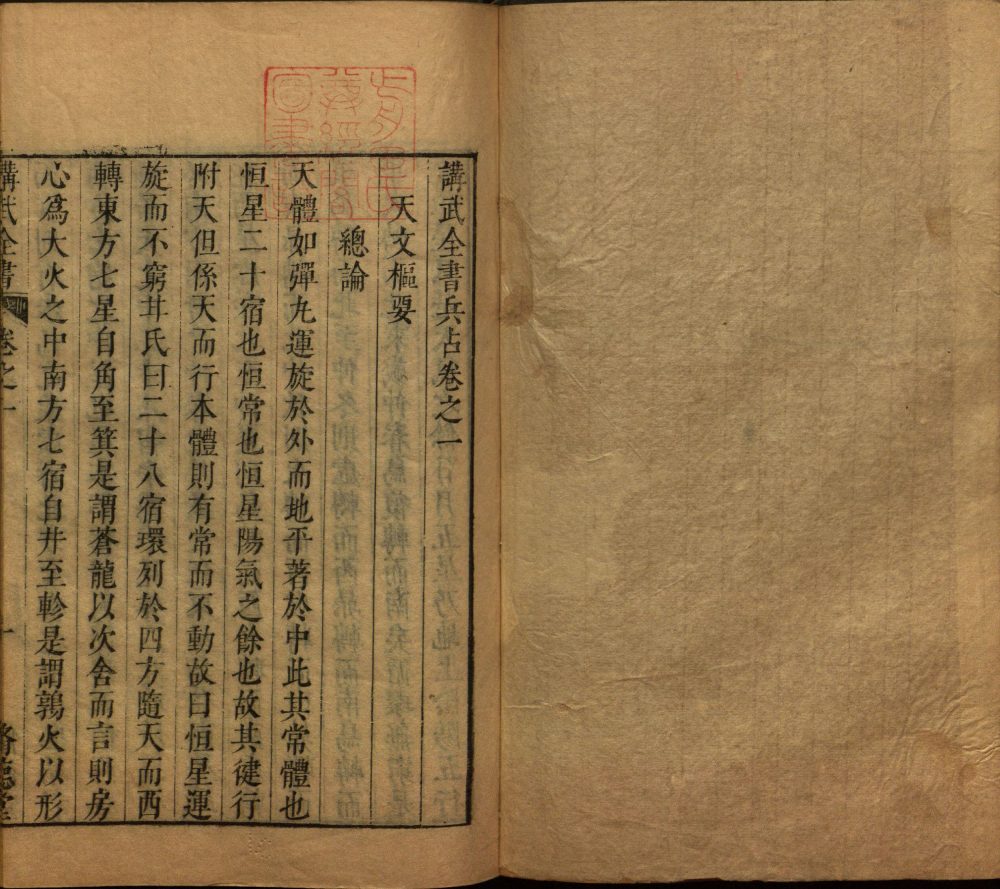 講武全書兵占卷之一
天文樞要
總論
天體如彈丸運旋於外而地平著於中此其常體也
恒星二十宿也恒常也恒星陽氣之餘也故其徤行
附天但係天而行本體則有常而不動故曰恒星運
旋而不窮丼氏曰二十八宿環列於四方隨天而西
轉東方七星自角至箕是謂蒼龍以次舍而言則房
心爲大火之中南方七宿自井至軫是謂鶉火以形
講武全書 卷之一 一